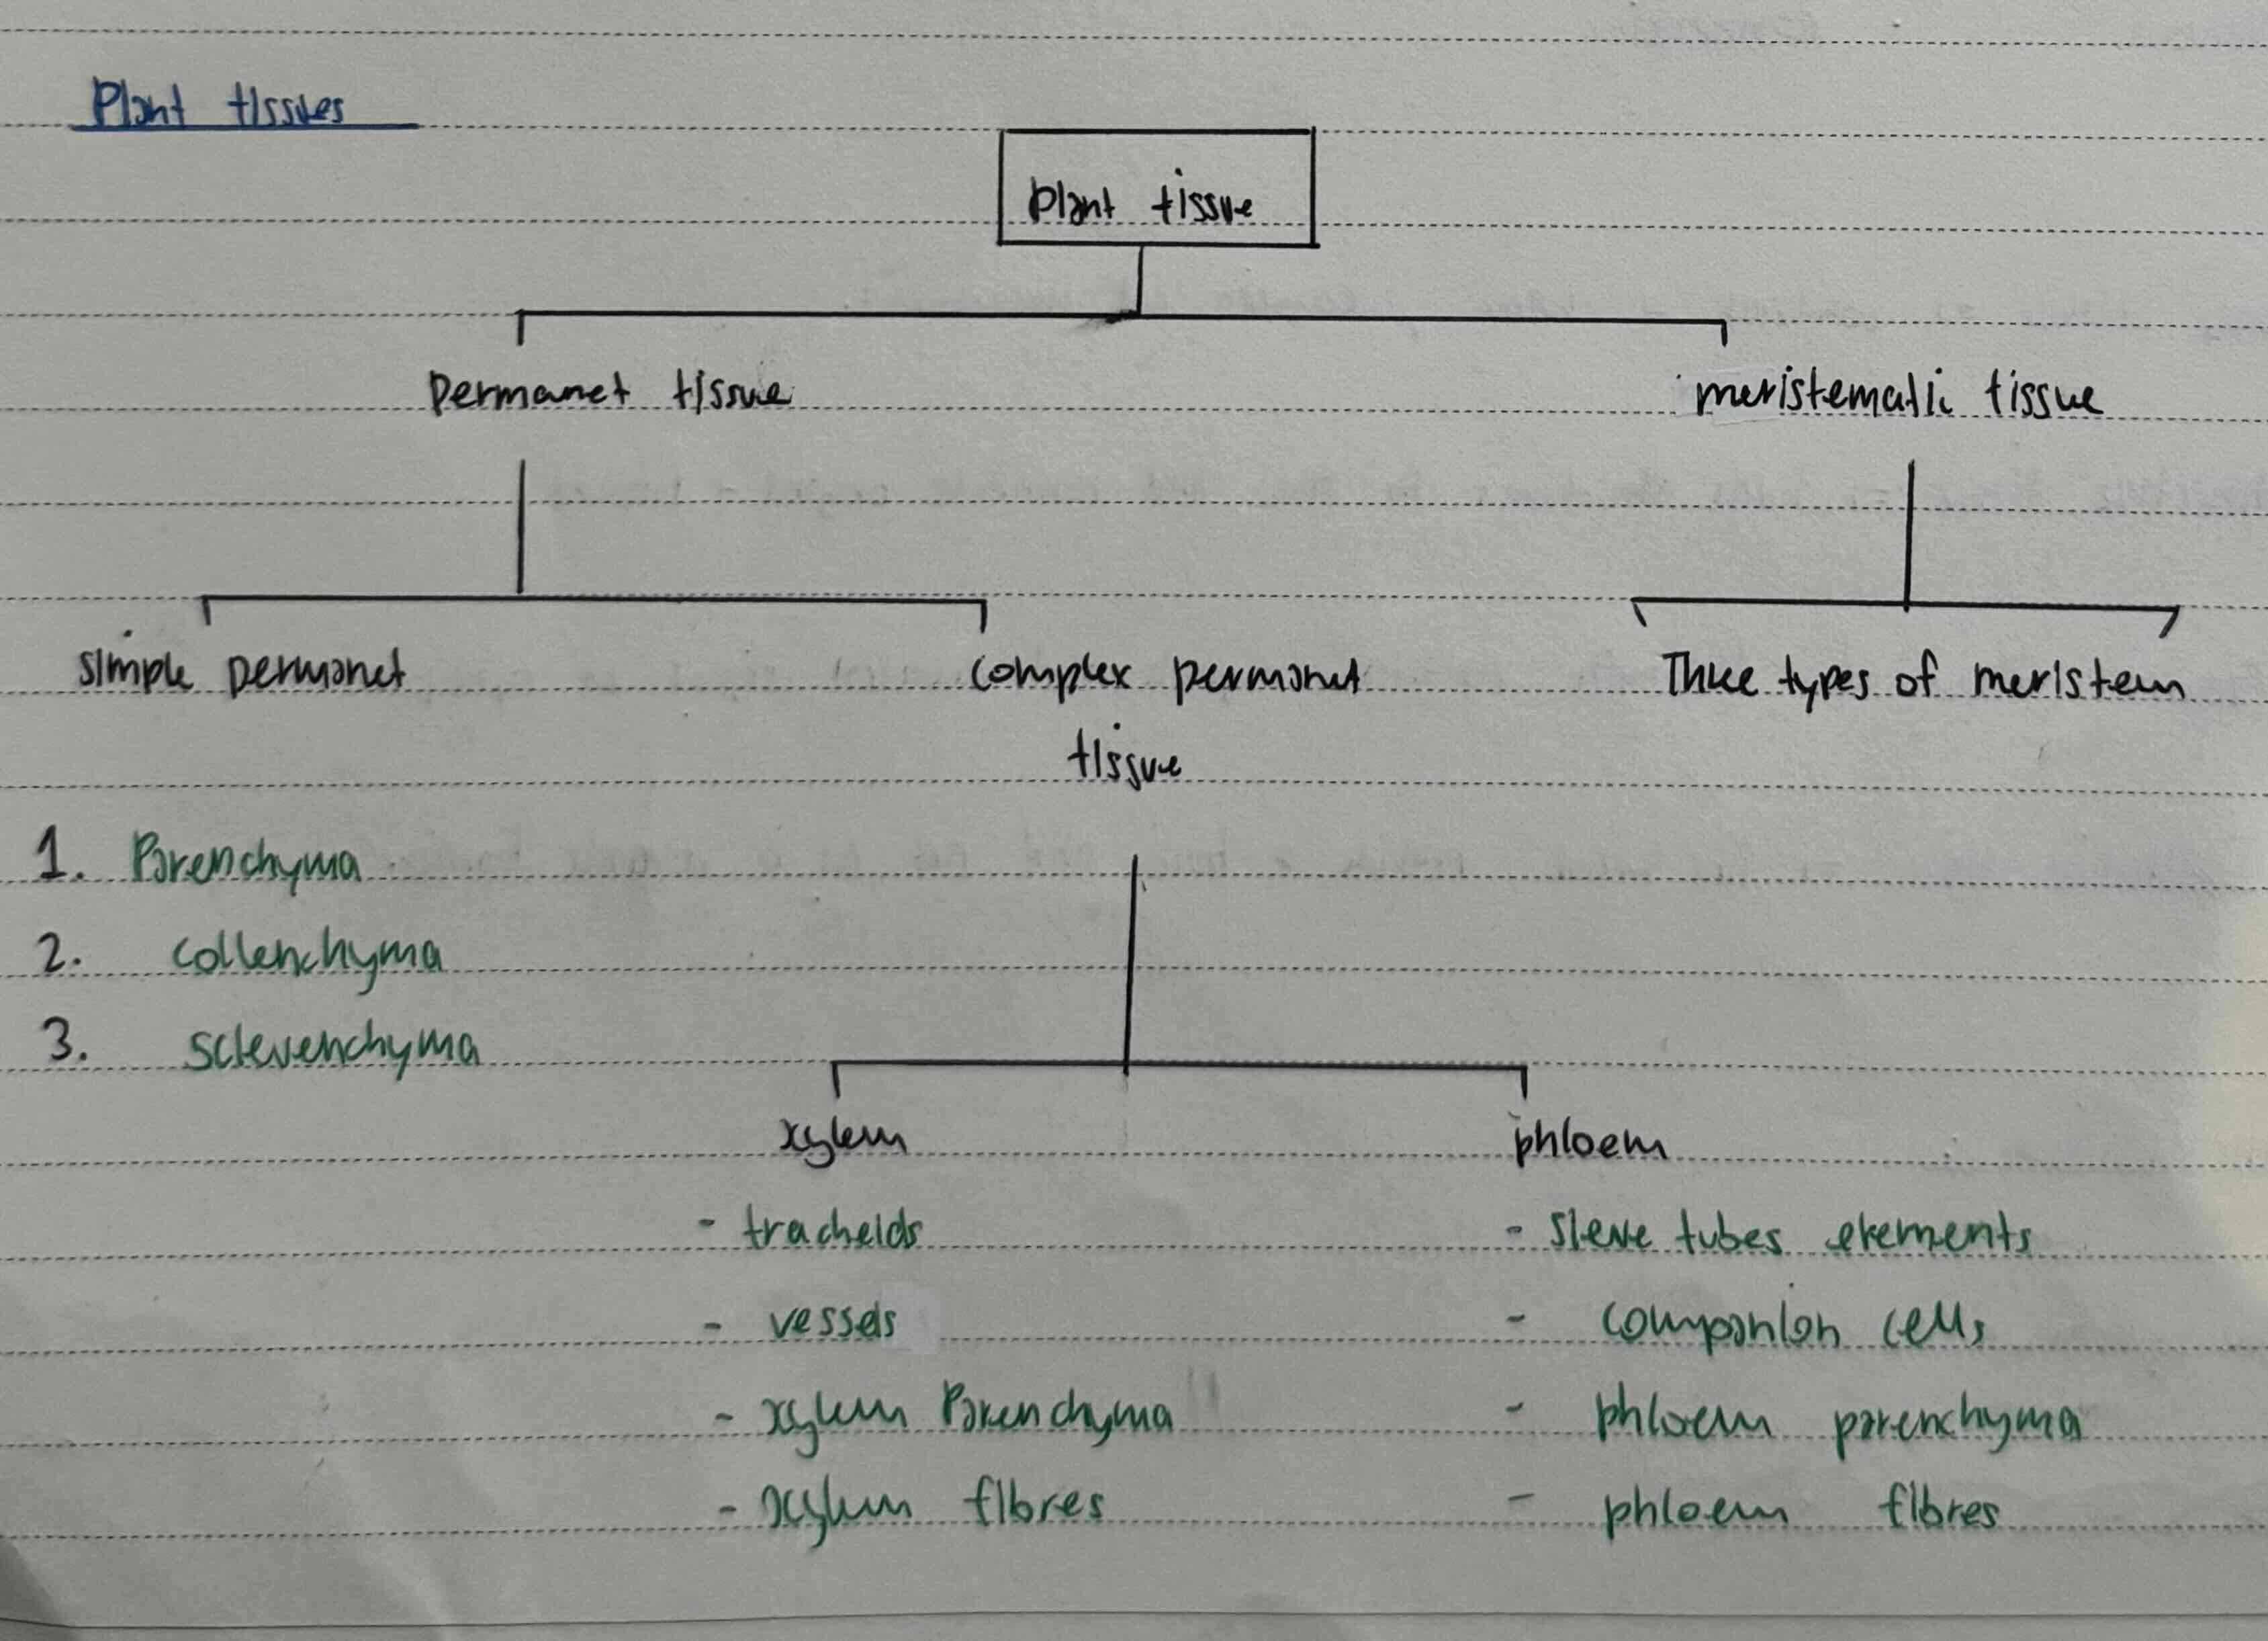 Plant tissues
plant tissue
permanet tissue
meristemati tissue
simple permanet
complex permanet
tissue
Three types of meristem
1. Parenchyma
2. collenchyma
3. sclerenchyma
xylem
phloem
- tracheids
- sieve tubes elements
- vessels
- companion cells
- xylem Parenchyma
- phloem parenchyma
- xylem fibres
- phloem fibres